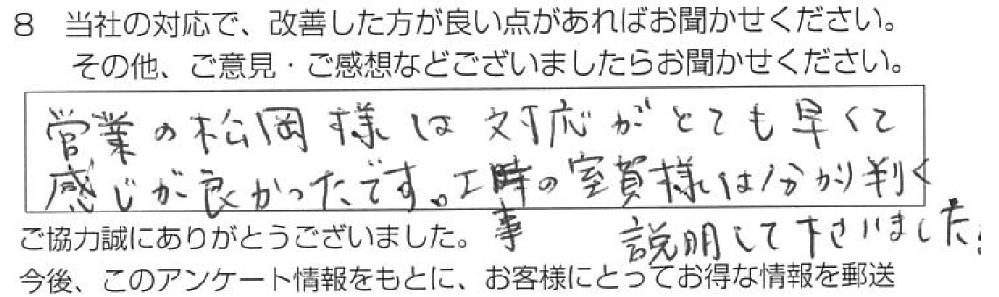 8 当社の対応で、改善した方が良い点があればお聞かせください。
その他、ご意見・ご感想などございましたらお聞かせください。
営業の松岡様は対応がとても早くて
感じが良かったです。工事の室賀様は分かり判く
説明して下さいました
ご協力誠にありがとうございました。
今後、このアンケート情報をもとに、お客様にとってお得な情報を郵送